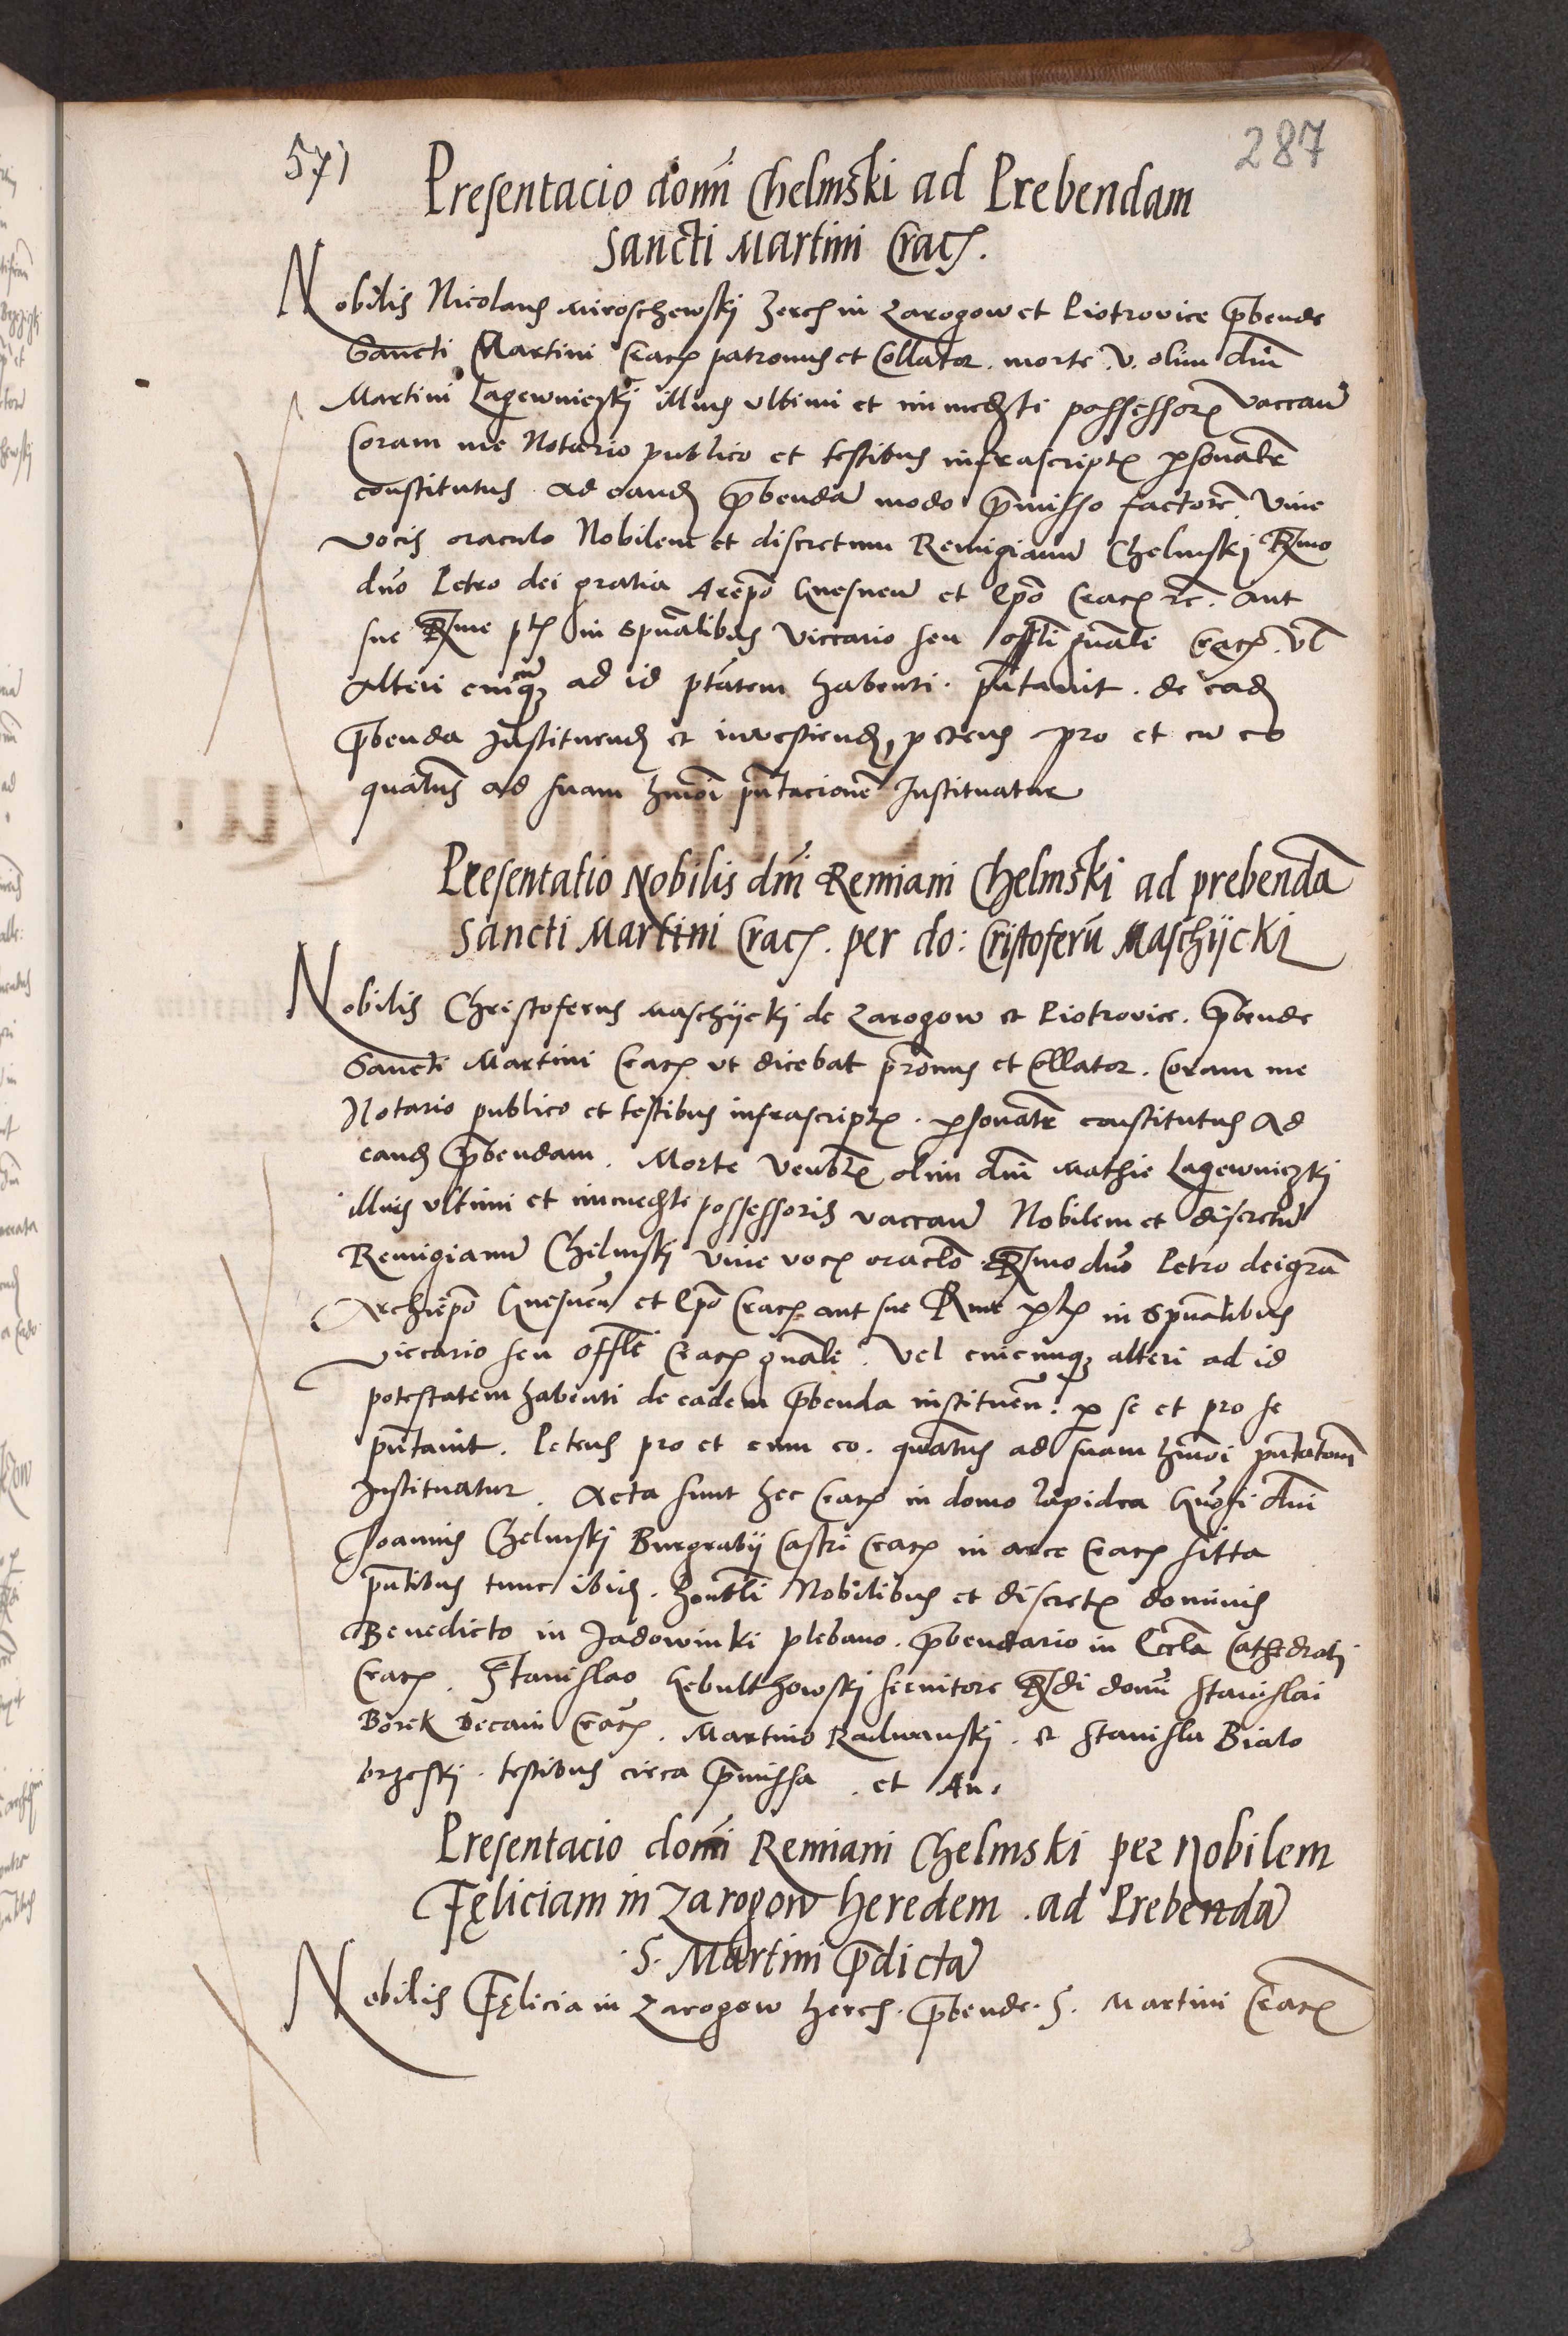 571
287
Presentacio domi Chelmski ad Prebendam
Sancti Martini Crac.
Nobilis Nicolaus Miroschewskj heres in Zarogow et Piotrovice p̄bende
Sancti Martini Crac patronus et Collator. morte. v. olim dni
Martini Lagewniczkj illius ultimi et immedte possessor vaccan̄
Coram me Notario publico et testibus infrascript psonalr̄
constitutus ad eand p̄bendā modo p̄misso factore vive
vocis oraculo Nobilem et discretum Remigianū Chelmskj Rmo
dno Petro dei gratia Arepō Gnesnen̄ et Epō Crac rc. aut
sue Rme pt in Spūalibus Viccario seu offli gnali Crac. vl
alteri cuicūq ad id ptatem habenti. pn̄tavit. de ead
p̄benda Instituend et investiend, petens pro et cū eo
quatn̄s ad suam hmoi pn̄tacionē Instituatur
Presentatio Nobilis dni Remiani Chelmski ad prebendā
Sancti Martini Crac. per do: Cristoferū Maschijcki
Nobilis Christoferus Maschijckj de Zarogow et Piotrovice. p̄bende
Sancti Martini Crac ut dicebat pronus et Collator. Coram me
Notario publico et testibus infrascript. psonalr̄ constitutus Ad
eand p̄bendam. Morte Venblis olim dni Mathie Lagewniczkj
illius ultimi et immedte possessoris vaccan̄ Nobilem et discretū
Remigianū Chilmskj vive voc oraclo Rmo dno Petro dei grā
Archiepō Gnesnen̄ et Epō Crac aut sue Rme pt in Spūalibus
Viccario seu Offli Crac gnale. Vel cuicunq alteri ad id
potestatem habenti de eadem p̄benda instituen̄. p se et pro se
pn̄tavit. Petens pro et cum eo. quatn̄s ad suam hmoi pn̄tatom̄
Instituatur. Acta sunt hec Crac in domo lapidea Gnosi dni
Joannis Chelmskj Burgrabij Castri Crac in arce Crac sitta
pn̄tibus tunc ibid. Honbli Nobilibus et discret dominis
Benedicto in Jadowinki plebano. p̄bendario in Eccla Cathedralj
Crac. Stanislao Gebulthowskj servitore Rdi domi Stanislai
Borek Decani Crac. Martino Radwanskj. et Stanisla Bialo
brzeskj. testibus circa p̄missa. et Au.
Presentacio domi Remiani Chelmski per Nobilem
Fęliciam in Zarogow heredem. ad Prebendā
.S. Martini p̄dictā
Nobilis Fęlicia in Zarogow heres. p̄bende. S. Martini Crac